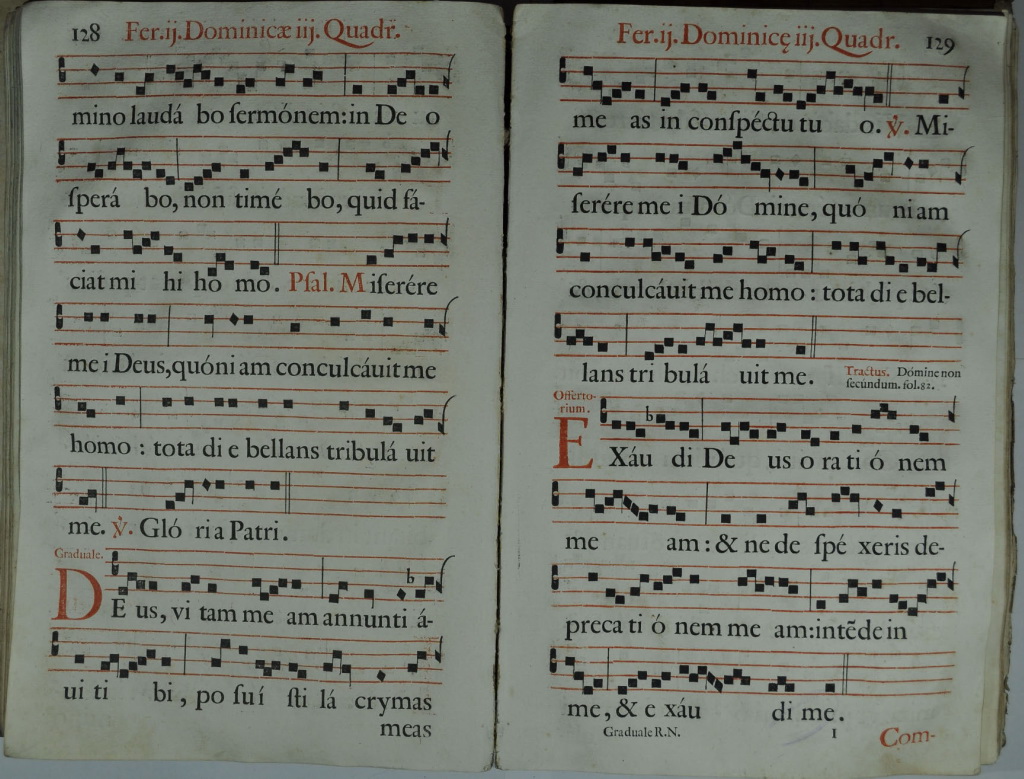 128 Fer.ij.Dominicæ iij. Quadr.
mino laudá bo ſermónem: in De o
ſperá bo, non timé bo, quid fá-
ciat mi hi ho mo. Pſal. Miſerére
me i Deus, quóni am conculcáuit me
homo : tota di e bellans tribulá uit
me. ℣. Gló ria Patri.
Graduale.
DE us, vi tam me am annunti á-
ui ti bi, po ſuí ſti lá crymas
meas
Fer.ij.Dominicę iij. Quadr. 129
me as in conſpéctu tu o. ℣. Mi-
ſerére me i Dó mine, quó ni am
conculcáuit me homo : tota di e bel-
lans tri bulá uit me. Tractus. Dómine non
ſecúndum. fol.82.
Offerto-
rium.
EXáu di De us o ra ti ó nem
me am : & ne de ſpé xeris de-
preca ti ó nem me am: intẽde in
me, & e xáu di me.
Graduale R.N. I Com-